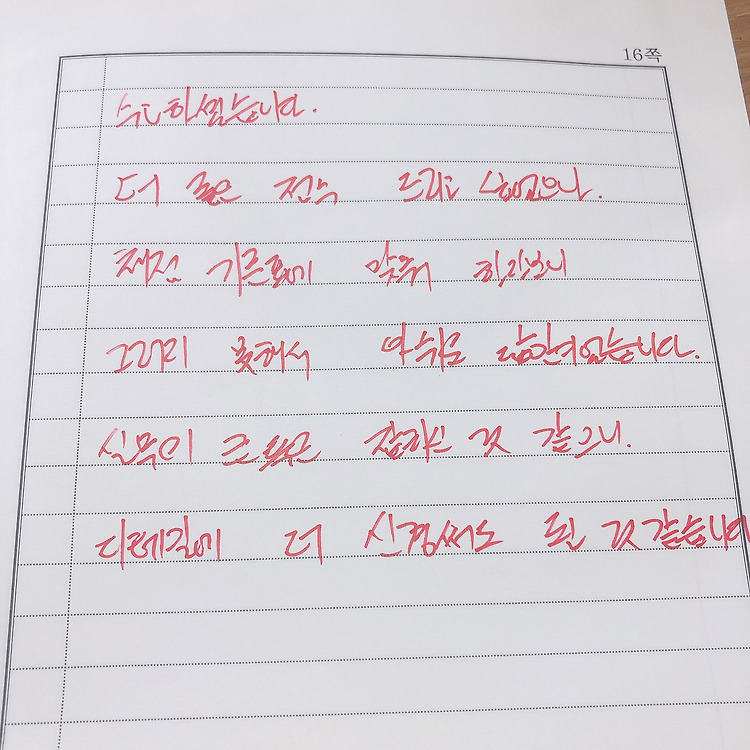 16쪽
수고하셨습니다.
더 좋은 점수 드리고 싶었으나.
채점 기준표에 맞춰 하다보니
그러지 못해서 아쉬움 남습니다.
실무의 큰 틀은 잡히신 것 같으니.
디테일에 더 신경써도 될 것 같습니다